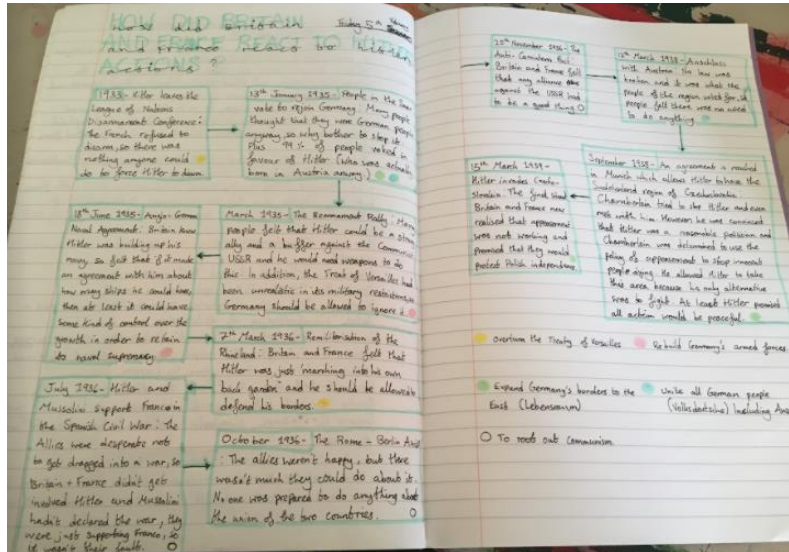 HOW DID BRITAIN
Friday 5th
AND FRANCE REACT TO HITLER'S
ACTIONS?
1933- Hitler leaves the
League of Nations
Disarmament Conference:
The French refused to
disarm, so there was
nothing anyone could
do to force Hitler to
13th January 1935- People in the Saar
vote to rejoin Germany: Many people
thought that they were German people
anyway, so why bother to stop it.
Plus 99% of people voted in
favour of Hitler (who was actually
born in Austria anyway.)
March 1935- The Rearmament Rally: Many
people felt that Hitler could be a strong
ally and a buffer against the Communist
USSR and he would need weapons to do
this. In addition, the Treaty of Versailles had
been unrealistic in its military restrictions, so
Germany should be allowed to ignore it.
18th June 1935- Anglo-German
Naval Agreement: Britain knew
Hitler was building up his
navy, so felt that if it made
an agreement with him about
how many ships he could have,
then at least it could have
some kind of control over the
growth in order to retain
its naval supremacy.
7th March 1936- Remilitarisation of the
Rhineland: Britain and France felt that
Hitler was just "marching into his own
back garden" and he should be allowed to
defend his borders.
July 1936- Hitler and
Mussolini support Franco in
the Spanish Civil War: The
Allies were desperate not
to get dragged into a war, so
Britain + France didn't get
involved. Hitler and Mussolini
hadn't declared the war, they
were just supporting Franco, so
it wasn't their fault.
October 1936- The Rome-Berlin Axis
: The allies weren't happy, but there
wasn't much they could do about it.
No one was prepared to do anything about
the union of the two countries.
25th November 1936- The
Anti-Comintern Pact:
Britain and France felt
that any alliance
against the USSR had
to be a good thing.
12th March 1938- Anschluss
with Austria: No law was
broken and it was what the
people of the region voted for, so
people felt there was no need
to do anything.
September 1938- An agreement is reached
in Munich which allows Hitler to have the
Sudetenland region of Czechoslovakia:
Chamberlain tried to and even
met with him. However he was convinced
that Hitler was a reasonable politician and
Chamberlain was determined to use the
policy of appeasement to stop innocent
people dying. He allowed Hitler to take
this area because his only alternative
was to fight. At least Hitler promised
all action would be peaceful.
15th March 1939-
Hitler invades Czecho-
slovakia: The first time
Britain and France now
realised that appeasement
was not working and
promised that they would
protect Polish independence.
Overturn the Treaty of Versailles
Rebuild Germany's armed forces
Expand Germany's borders to the
East (Lebensraum)
Unite all German people
(Volksdeutsche) including
To root out communism.